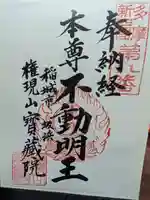 奉納経
多摩
新四国
第七番
本尊不動明王
稲城市坂浜
権現山寶蔵院